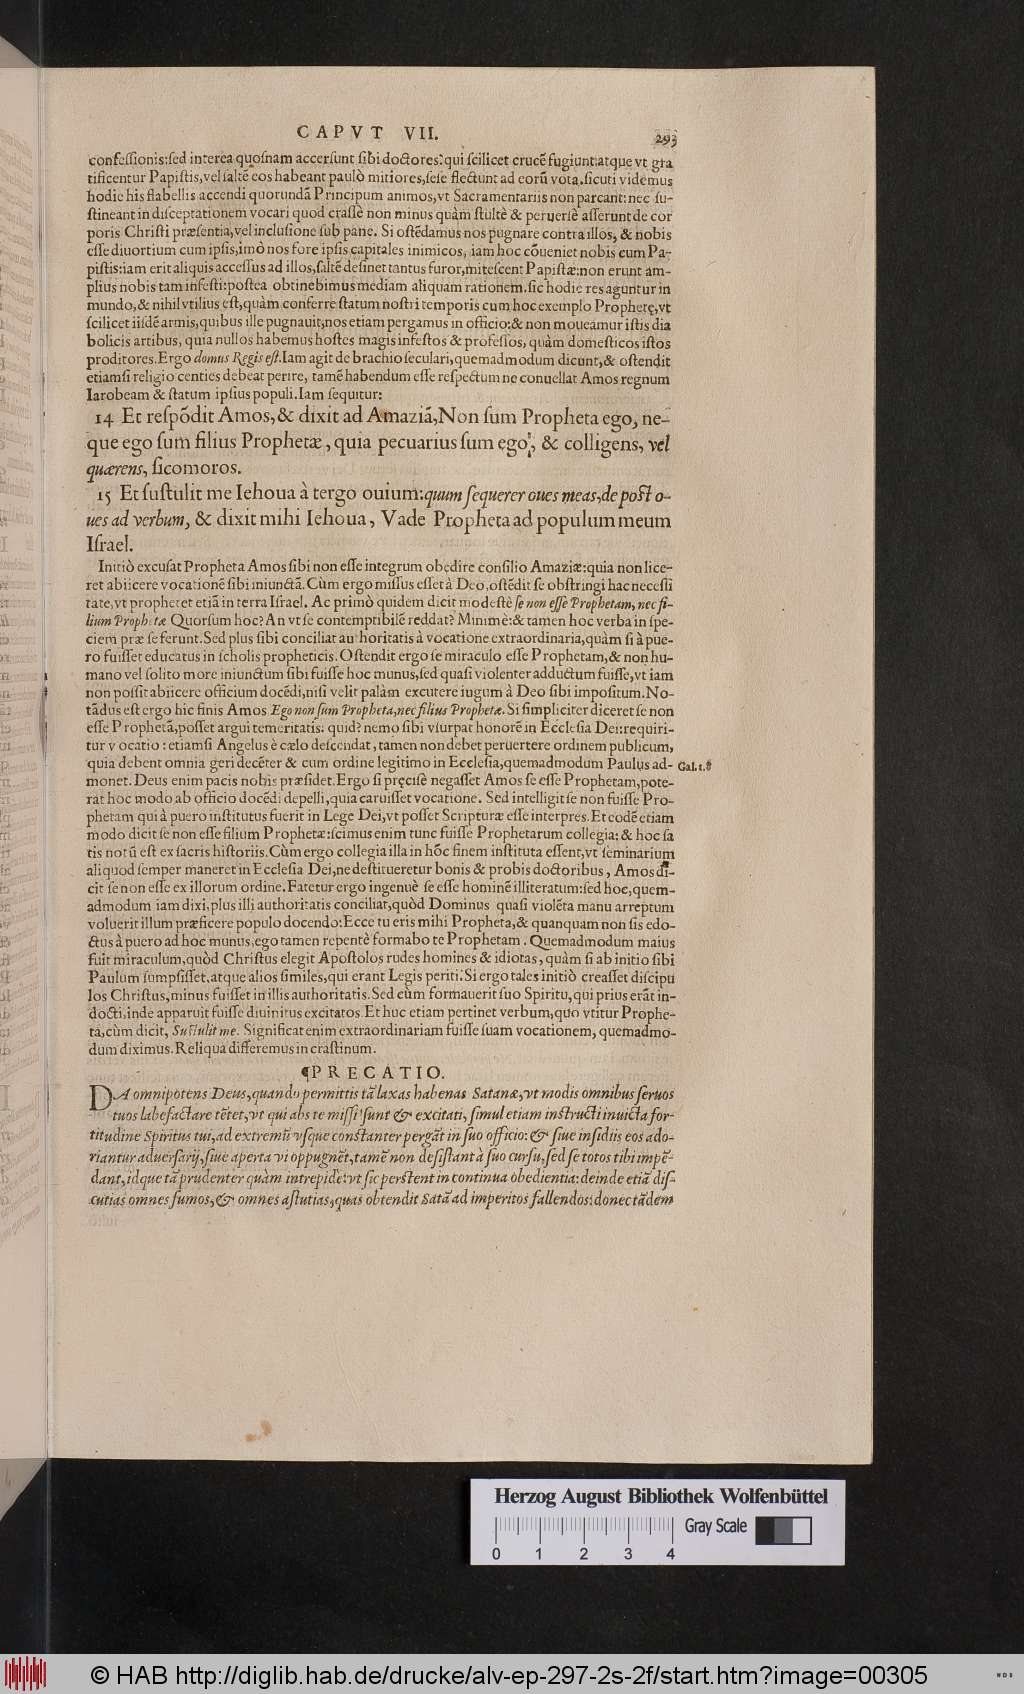 CAPVT VII. 293
confeſſionis:ſed interea quoſnam accerſunt ſibi doctores?qui ſcilicet crucẽ fugiunt:atque vt gra
tificentur Papiſtis,vel ſaltẽ eos habeant paulò mitiores,ſeſe flectunt ad eorũ vota.ſicuti videmus
hodie his flabellis accendi quorundã Principum animos,vt Sacramentariis non parcant:nec ſu-
ſtineant in diſceptationem vocari quod craſſè non minus quàm ſtultè & peruerſè aſſerunt de cor
poris Chriſti præſentia,vel incluſione ſub pane. Si oſtẽdamus nos pugnare contra illos, & nobis
eſſe diuortium cum ipſis,imò nos fore ipſis capitales inimicos, iam hoc cõueniet nobis cum Pa-
piſtis:iam erit aliquis acceſſus ad illos,ſaltẽ deſinet tantus furor,miteſcent Papiſtæ:non erunt am-
plius nobis tam infeſti:poſtea obtinebimus mediam aliquam rationem.ſic hodie res aguntur in
mundo,& nihil vtilius eſt,quàm conferre ſtatum noſtri temporis cum hoc exemplo Prophetę,vt
ſcilicet iiſdẽ armis,quibus ille pugnauit,nos etiam pergamus in officio:& non moueamur iſtis dia
bolicis artibus, quia nullos habemus hoſtes magis infeſtos & profeſſos, quàm domeſticos iſtos
proditores.Ergo domus Regis eſt.Iam agit de brachio ſeculari,quemadmodum dicunt,& oſtendit
etiamſi religio centies debeat perire, tamẽ habendum eſſe reſpectum ne conuellat Amos regnum
Iarobeam & ſtatum ipſius populi.Iam ſequitur:
14 Et reſpõdit Amos,& dixit ad Amaziã,Non ſum Propheta ego, ne-
que ego ſum filius Prophetæ, quia pecuarius ſum ego, & colligens, vel
quærens, ſicomoros.
15 Et ſuſtulit me Iehoua à tergo ouium:quum ſequerer oues meas,de poſt o-
ues ad verbum, & dixit mihi Iehoua, Vade Propheta ad populum meum
Iſrael.
Initiò excuſat Propheta Amos ſibi non eſſe integrum obedire conſilio Amaziæ:quia non lice-
ret abiicere vocationẽ ſibi iniunctã.Cùm ergo miſſus eſſet à Deo,oſtẽdit ſe obſtringi hac neceſſi
tate,vt prophetet etiã in terra Iſrael. Ac primò quidem dicit modeſtè ſe non eſſe Prophetam, nec fi-
lium Prophetæ Quorſum hoc?An vt ſe contemptibilẽ reddat? Minimè:& tamen hoc verba in ſpe-
ciem præ ſe ferunt.Sed plus ſibi conciliat authoritatis à vocatione extraordinaria,quàm ſi à pue-
ro fuiſſet educatus in ſcholis propheticis. Oſtendit ergo ſe miraculo eſſe Prophetam,& non hu-
mano vel ſolito more iniunctum ſibi fuiſſe hoc munus,ſed quaſi violenter adductum fuiſſe,vt iam
non poſſit abiicere officium docẽdi,niſi velit palàm excutere iugum à Deo ſibi impoſitum.No-
tãdus eſt ergo hic finis Amos Ego non ſum Propheta,nec filius Prophetæ.Si ſimpliciter diceret ſe non
eſſe Prophetã,poſſet argui temeritatis: quid? nemo ſibi vſurpat honorẽ in Eccleſia Dei:requiri-
tur vocatio: etiamſi Angelus è cælo deſcendat, tamen non debet peruertere ordinem publicum,
quia debent omnia geri decẽter & cum ordine legitimo in Eccleſia,quemadmodum Paulus ad- Gal.1.8
monet. Deus enim pacis nobis præſidet.Ergo ſi pręciſè negaſſet Amos ſe eſſe Prophetam,pote-
rat hoc modo ab officio docẽdi depelli,quia caruiſſet vocatione. Sed intelligit ſe non fuiſſe Pro-
phetam qui à puero inſtitutus fuerit in Lege Dei,vt poſſet Scripturæ eſſe interpres.Et codẽ etiam
modo dicit ſe non eſſe filium Prophetæ:ſcimus enim tunc fuiſſe Prophetarum collegia: & hoc ſa
tis notũ eſt ex ſacris hiſtoriis.Cùm ergo collegia illa in hõc finem inſtituta eſſent,vt ſeminarium
aliquod ſemper maneret in Eccleſia Dei,ne deſtitueretur bonis & probis doctoribus, Amos di-
cit ſe non eſſe ex illorum ordine.Fatetur ergo ingenuè ſe eſſe hominẽ illiteratum:ſed hoc,quem-
admodum iam dixi,plus illi authoritatis conciliat,quòd Dominus quaſi violẽta manu arreptum
voluerit illum præficere populo docendo:Ecce tu eris mihi Propheta,& quanquam non ſis edo-
ctus à puero ad hoc munus,ego tamen repentè formabo te Prophetam. Quemadmodum maius
fuit miraculum,quòd Chriſtus elegit Apoſtolos rudes homines & idiotas, quàm ſi ab initio ſibi
Paulum ſumpſiſſet,atque alios ſimiles,qui erant Legis periti.Si ergo tales initiò creaſſet diſcipu
los Chriſtus,minus fuiſſet in illis authoritatis.Sed cùm formauerit ſuo Spiritu,qui prius erãt in-
docti,inde apparuit fuiſſe diuinitus excitatos.Et huc etiam pertinet verbum,quo vtitur Prophe-
ta,cùm dicit, Suſtulit me. Significat enim extraordinariam fuiſſe ſuam vocationem, quemadmo-
dum diximus.Reliqua differemus in craſtinum.
¶PRECATIO.
DA omnipotens Deus,quando permittis tã laxas habenas Satanæ,vt modis omnibus ſeruos
tuos labefactare tẽtet,vt qui abs te miſſi ſunt & excitati, ſimul etiam inſtructi inuicta for-
titudine Spiritus tui,ad extremũ vſque conſtanter pergãt in ſuo officio: & ſiue inſidiis eos ado-
riantur aduerſarij,ſiue aperta vi oppugnẽt,tamẽ non deſiſtant à ſuo curſu,ſed ſe totos tibi impẽ-
dant,idque tã prudenter quàm intrepidè:vt ſic perſtent in continua obedientia:deinde etiã diſ-
cutias omnes fumos,& omnes aſtutias,quas obtendit Satã ad imperitos fallendos:donec tãdem
Herzog August Bibliothek Wolfenbüttel
Gray Scale
0 1 2 3 4
© HAB http://diglib.hab.de/drucke/alv-ep-297-2s-2f/start.htm?image=00305